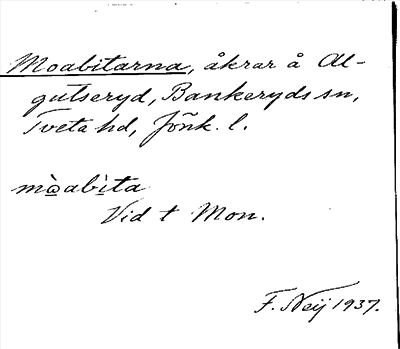 Moabitarna, åkrar å Al-
gutseryd, Bankeryds sn,
Tveta hd, Jönk. l.
mòabìta
Vid t Mon.
F. Neij 1937.